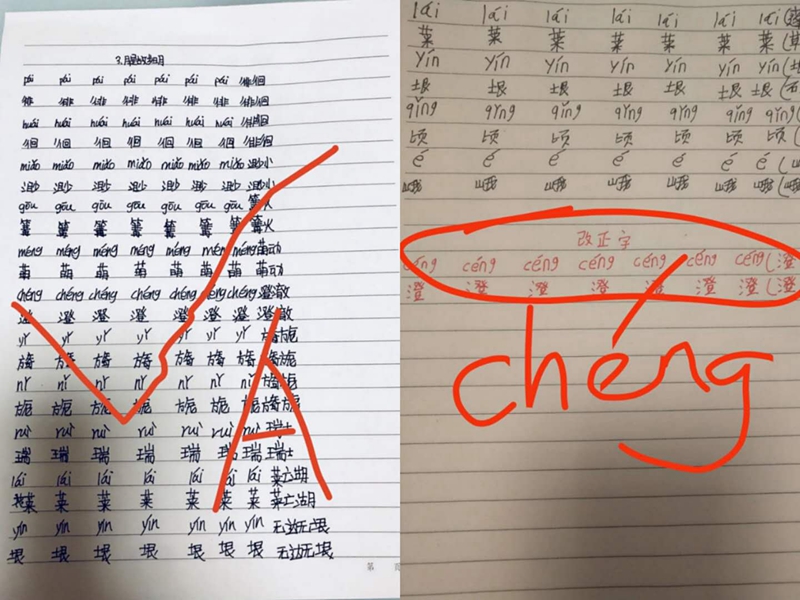 3.
pái pái pái pái pái pái pái 徘徊
徘 徘 徘 徘 徘 徘 徘徊
huái huái huái huái huái huái huái 徘徊
徊 徊 徊 徊 徊 徊 徘徊
miǎo miǎo miǎo miǎo miǎo miǎo miǎo 渺小
渺 渺 渺 渺 渺 渺 渺 渺小
gōu gōu gōu gōu gōu gōu gōu 篝火
篝 篝 篝 篝 篝 篝 篝 篝火
méng méng méng méng méng méng méng 萌动
萌 萌 萌 萌 萌 萌 萌 萌动
chéng chéng chéng chéng chéng chéng chéng 澄澈
澄 澄 澄 澄 澄 澄 澄 澄澈
yǐ yǐ yǐ yǐ yǐ yǐ yǐ 旖旎
旖 旖 旖 旖 旖 旖 旖旎
nǐ nǐ nǐ nǐ nǐ nǐ nǐ 旖旎
旎 旎 旎 旎 旎 旎 旎 旖旎
ruì ruì ruì ruì ruì ruì ruì 瑞士
瑞 瑞 瑞 瑞 瑞 瑞 瑞 瑞士
lái lái lái lái lái lái lái 莱芒湖
莱 莱 莱 莱 莱 莱 莱 莱芒湖
yín yín yín yín yín yín yín 无边无垠
垠 垠 垠 垠 垠 垠 垠 无边无垠
第
A
lái lái lái lái lái lái lái
莱 莱 莱 莱 莱 莱 莱
yín yín yín yín yín yín yín
垠 垠 垠 垠 垠 垠 垠
qǐng qǐng qǐng qǐng qǐng qǐng qǐng
顷 顷 顷 顷 顷 顷 顷
é é é é é é é
峨 峨 峨 峨 峨 峨 峨
改正字
céng céng céng céng céng céng céng (澄
澄 澄 澄 澄 澄 澄 澄 (澄
chéng